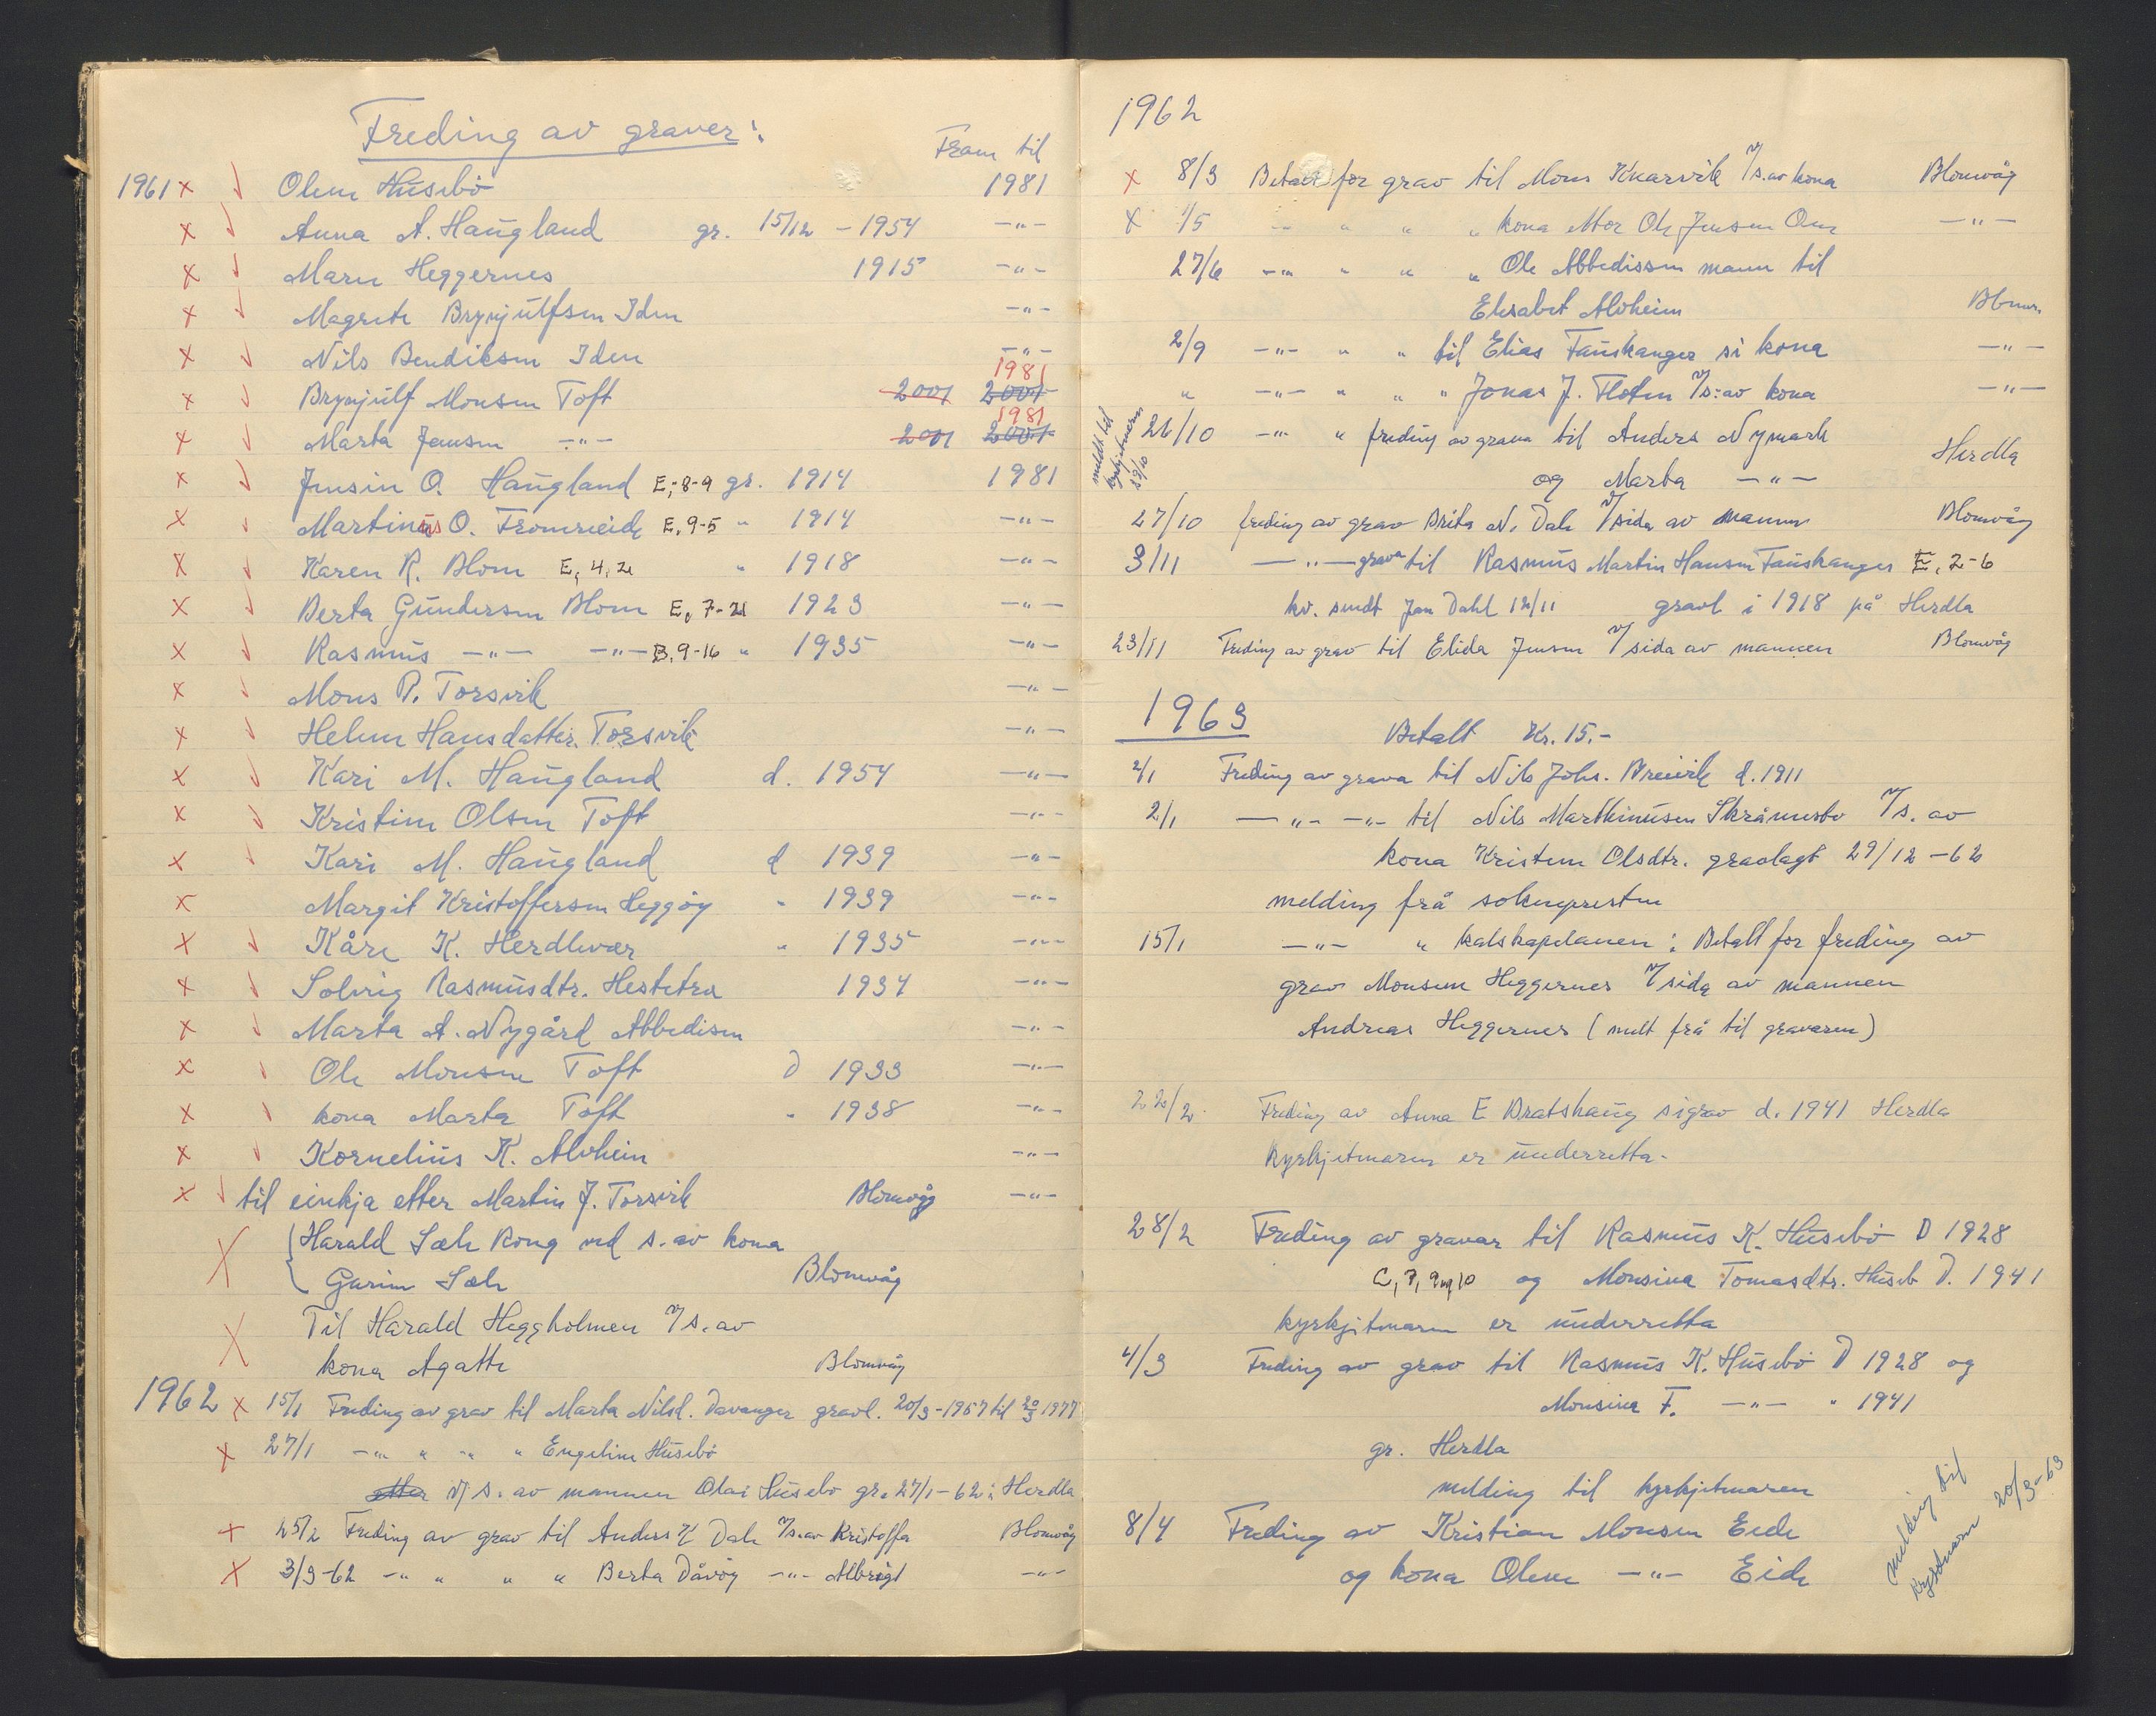 Freding av graver:
Fram til
1961 x Olene Husebö 1981
x Anna A. Haugland gr. 15/12 - 1954 -"-
x Maren Heggernes 1915 -"-
x Magrete Brynjulfsen Iden -"-
x Nils Bendiksen Iden -"-
1981
x Brynjulf Monsen Toft 2001 2001
1981
x Marta Jensen -"- 2001 2001
x Jensin O. Haugland E,-8-9 gr. 1914 1981
x Martinus O. Fromreide E, 9-5 " 1914 -"-
x Karen R. Blom E, 4, 21 " 1918 -"-
x Berta Gundersen Blom E, 7-21 1923 -"-
x Rasmus -"- -"- B, 9-16 " 1935 -"-
x Mons P. Torsvik -"-
x Helene Hansdatter Torsvik -"-
x Kari M. Haugland d. 1954 -"-
x Kristine Olsen Toft -"-
x Kari M. Haugland d 1939 -"-
x Margit Kristoffersen Heggöy " 1939 -"-
x Kåre K. Herdlevær " 1935 -"-
x Solveig Rasmusdtr. Hestetræ 1934 -"-
x Marta A. Nygård Abbedisen -"-
x Ole Monsen Toft D 1933 -"-
x kona Marta Toft " 1938 -"-
x Kornelius K. Alvheim -"-
x til einkja etter Martin J. Torsvik Blomvåg -"-
x Harald Sæle Rong ved s. av kona
Gurine Sæle Blomvåg
x Til Harald Heggholmen v/s. av
kona Agathe Blomvåg
1962 x 15/1 Freding av grav til Marta Nilsd. Davanger gravl. 20/3-1957 til 20/3 1977
x 27/1 -"- " -"- " Engeline Husebö
etter v/ s. av mannen Olai Husebö gr. 27/1-62 i Herdla
x 25/2 Freding av grav til Anders K Dale v/s. av Kristoffa Blomvåg
x 3/3-62 -"- " " " Berta Dåvöy -"- Albrigt -"-
1962
x 8/3 Betalt for grav til Mons Knarvik v/s. av kona Blomvåg
x 1/5 -"- " " " kona etter Ole Jensen One -"-
27/6 -"- " " " Ole Abbedissen mann til
Elisabet Alvheim Blomv.
2/9 -"- " " til Elias Fauskanger si kona -"-
" -"- " " " Jonas J. Floten v/s: av kona -"-
meldt til kyrkjetenaren 29/10
26/10 -"- " freding av grava til Anders Nymark
og Marta -"- Herdla
27/10 freding av grav Brita N. Dale v/sida av mannen Blomvåg
3/11 -"- grava til Rasmus Martin Hansen Fauskanger E, 2-6
kv. sendt Jan Dahl 12/11 gravl i 1918 på Herdla
23/11 Freding av grav til Elida Jensen v/sida av mannen Blomvåg
1963
Betalt Kr. 15.-
2/1 Freding av grava til Nils Johs. Breivik d. 1911
2/1 -"- -"- til Nils Marthinusen Skråmestö v/s. av
kona Kristine Olsdtr. gravlagt 29/12-62
melding frå sokneprestn
15/1 -"- " kalskapelanen: Betalt for freding av
grav Monsine Heggernes v/sida av mannen
Andreas Heggernes (meldt frå til gravaren)
22/2. Freding av Anna E Bratshaug si grav d. 1941 Herdla
Kyrkjetenaren er underretta.
28/2 Freding av gravar til Rasmus K. Husebö D 1928
C, 7, 9 og 10 og Monsina Tomasdtr. Huseb D. 1941
kyrkjetenaren er underretta
4/3 Freding av grav til Rasmus K. Husebö D 1928 og
Monsina F. -"- " 1941
gr. Herdla
melding til kyrkjetenaren
8/4 Freding av Kristian Monsen Eide
og kona Olene -"- Eide
melding til
20/3-63